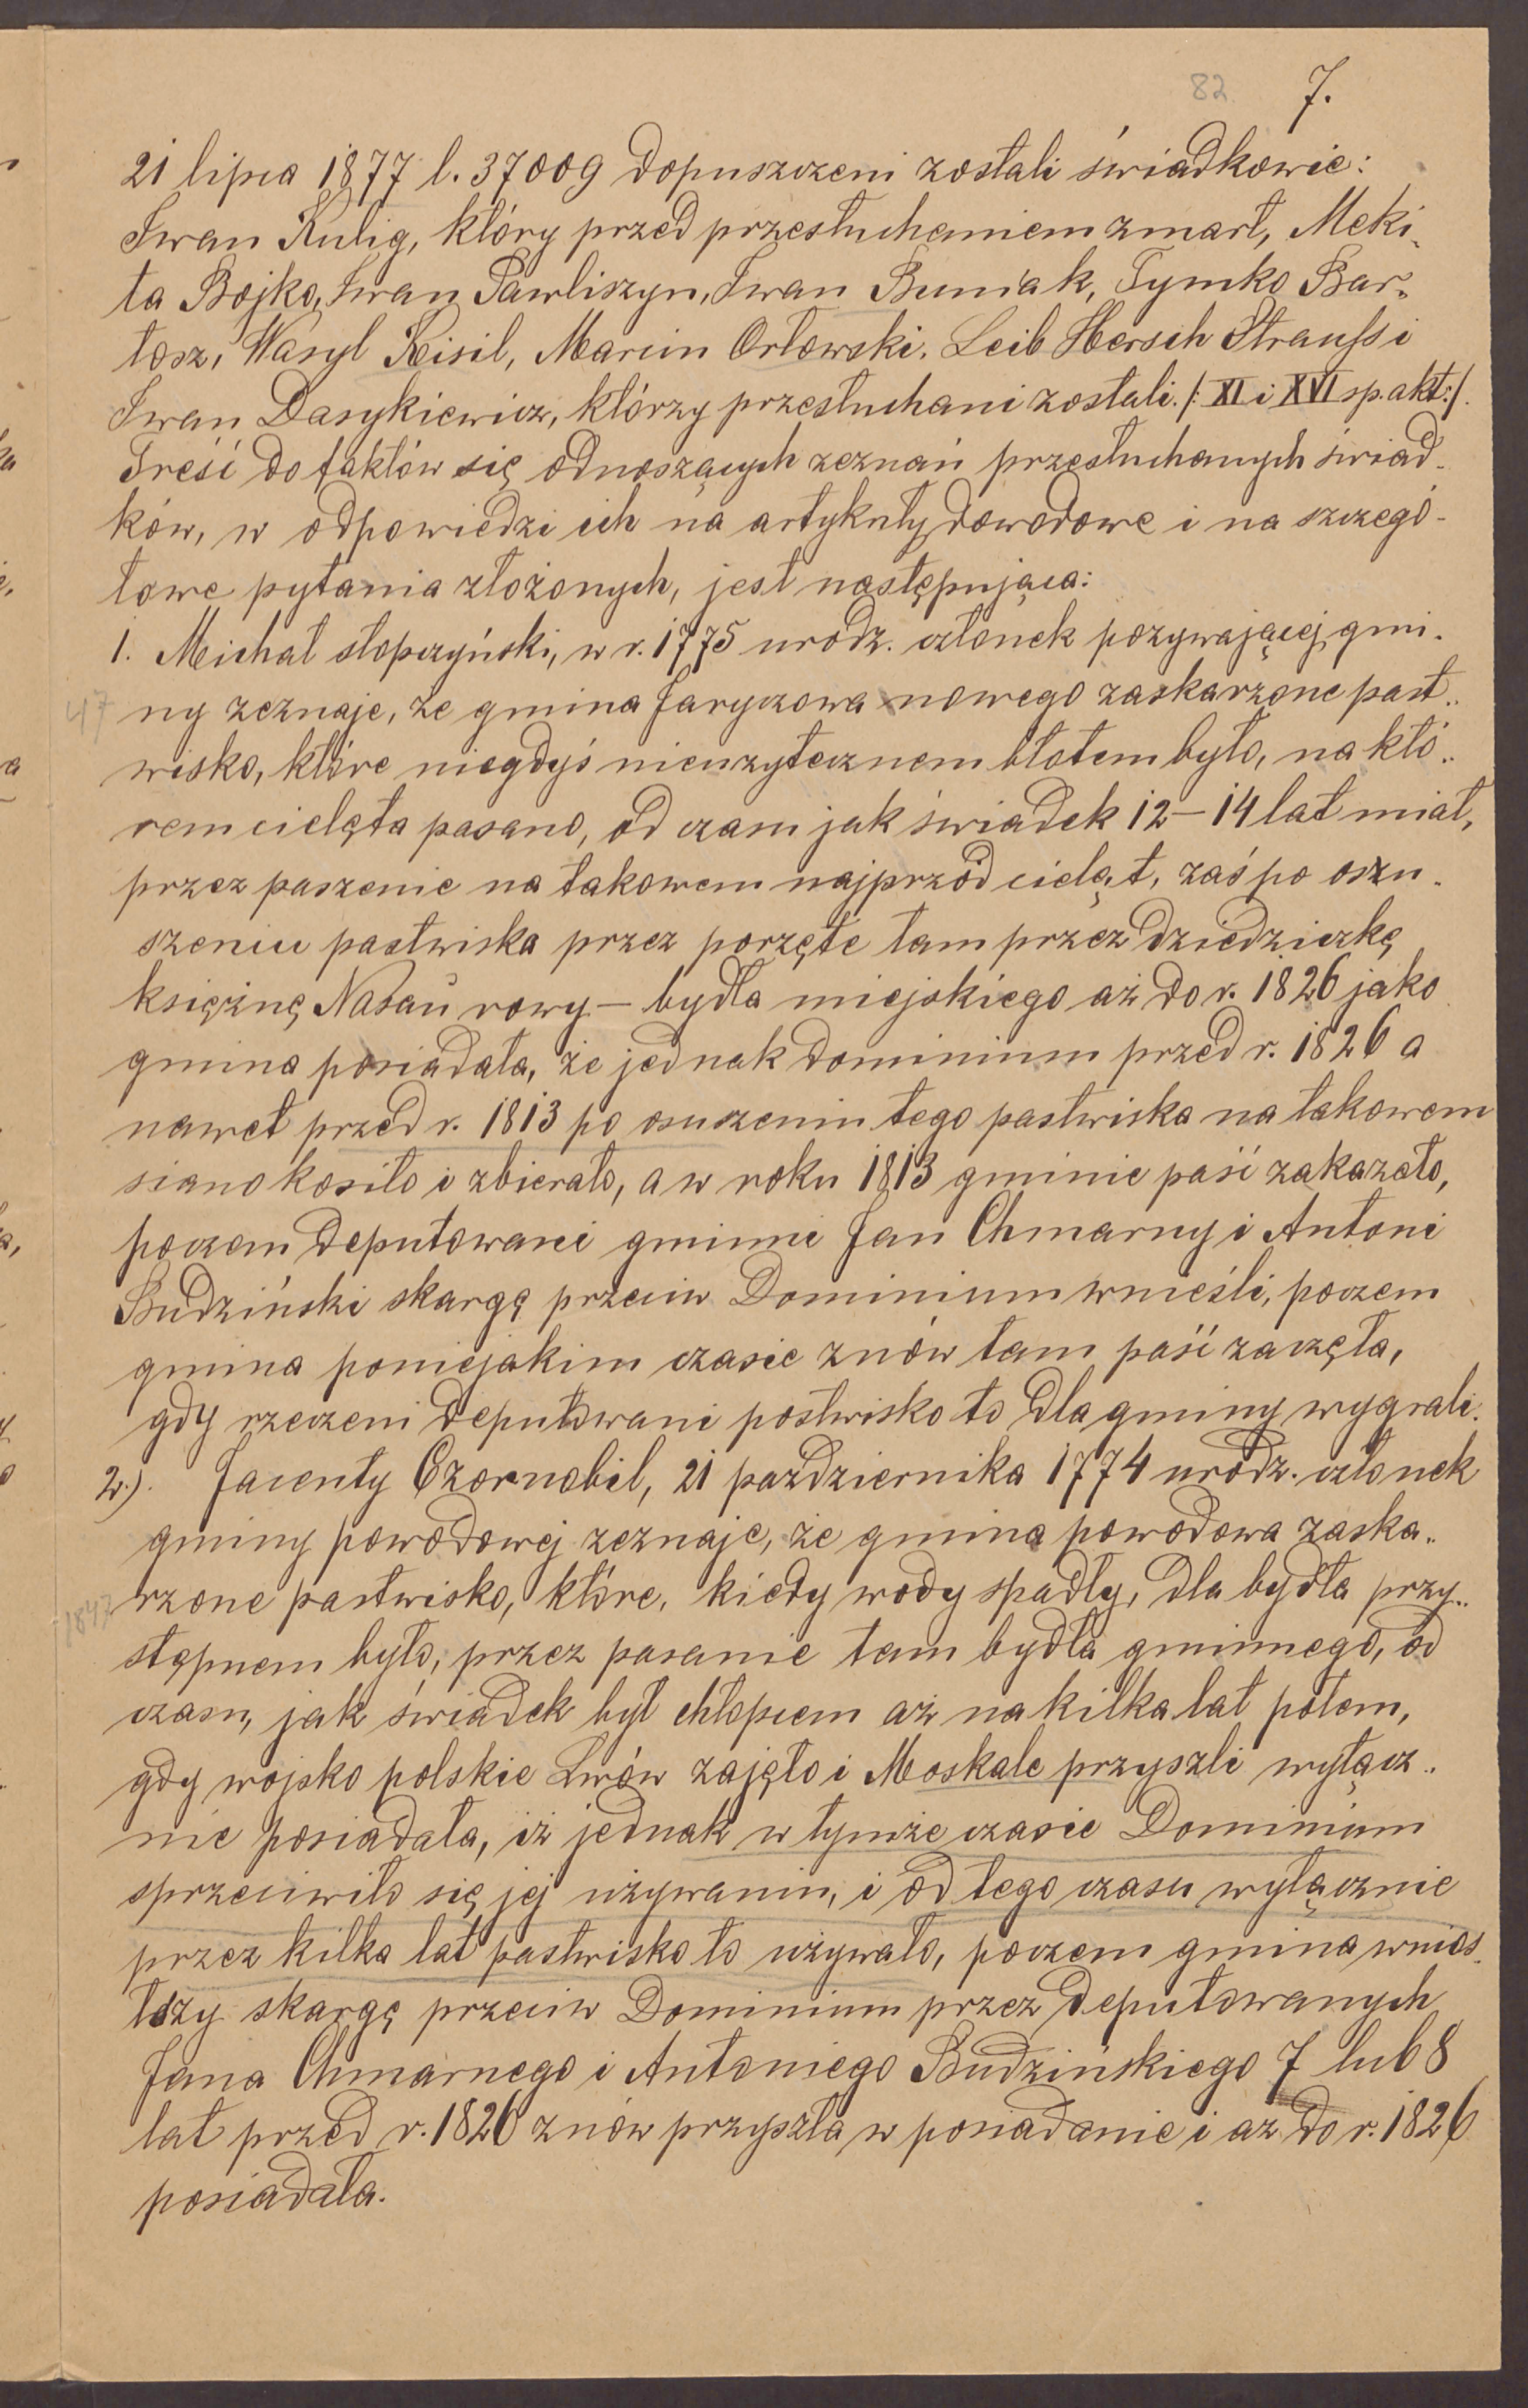 82 7.
21 lipca 1877 l. 37009 dopuszczeni zostali świadkowie:
Iwan Kulig, który przed przesłuchaniem zmarł, Meki-
ta Bojko, Iwan Pawliszyn, Iwan Buniak, Tymko Bar-
tosz, Wasyl Kisil, Marcin Orłowski, Leib Hersch Strauss i
Iwan Dasykiewicz, którzy przesłuchani zostali. /: XI i XVI sp. akt :/.
Treść do faktów się odnoszących zeznań przesłuchanych świad-
ków, w odpowiedzi ich na artykuły dowodowe i na szczegó-
łowe pytania złożonych, jest następująca:
1. Michał Słopczyński, w r. 1775 urodz. członek pozywającej gmi-
47 ny zeznaje, że gmina Jaryczowa nowego zaskarzone past-
wisko, które niegdyś nieużytecznem błotem było, na któ-
rem cielęta pasano, od czasu jak świadek 12–14 lat miał,
przez paszenie na takowem najprzód cieląt, zaś po oszu-
szeniu pastwiska przez porzęte tam przez dziedziczkę
księżnę Nasau rowy – bydła miejskiego aż do r. 1826 jako
gmina posiadała, że jednak dominium przed r. 1826 a
nawet przed r. 1813 po osuszeniu tego pastwiska na takowem
siano kosiło i zbierało, a w roku 1813 gminie paść zakazało,
poczem deputowani gminni Jan Chmarny i Antoni
Budziński skargę przeciw Dominium wnieśli, poczem
gmina poniejakim czasie znów tam paść zaczęła,
gdy rzeczeni deputowani postwisko to dla gminy wygrali.
2.) Jacenty Czornobil, 21 pazdziernika 1774 urodz. członek
gminy powodowej zeznaje, że gmina powodowa zaska-
1847 rzone pastwisko, które, kiedy wody spadły, dla bydła przy-
stępnem było, przez pasanie tam bydła gminnego, od
czasu, jak świadek był chłopcem aż na kilka lat potem,
gdy wojsko polskie Lwów zajęło i Moskale przyszli wyłącz-
nie posiadała, iż jednak w tymże czasie Dominium
sprzeciwiło się jej używaniu, i od tego czasu wyłącznie
przez kilka lat pastwisko to używało, poczem gmina wnios-
łszy skargę przeciw Dominium przez deputowanych
Jana Chmarnego i Antoniego Budzińskiego 7 lub 8
lat przed r. 1826 znów przyszła w posiadanie i aż do r. 1826
posiadała.